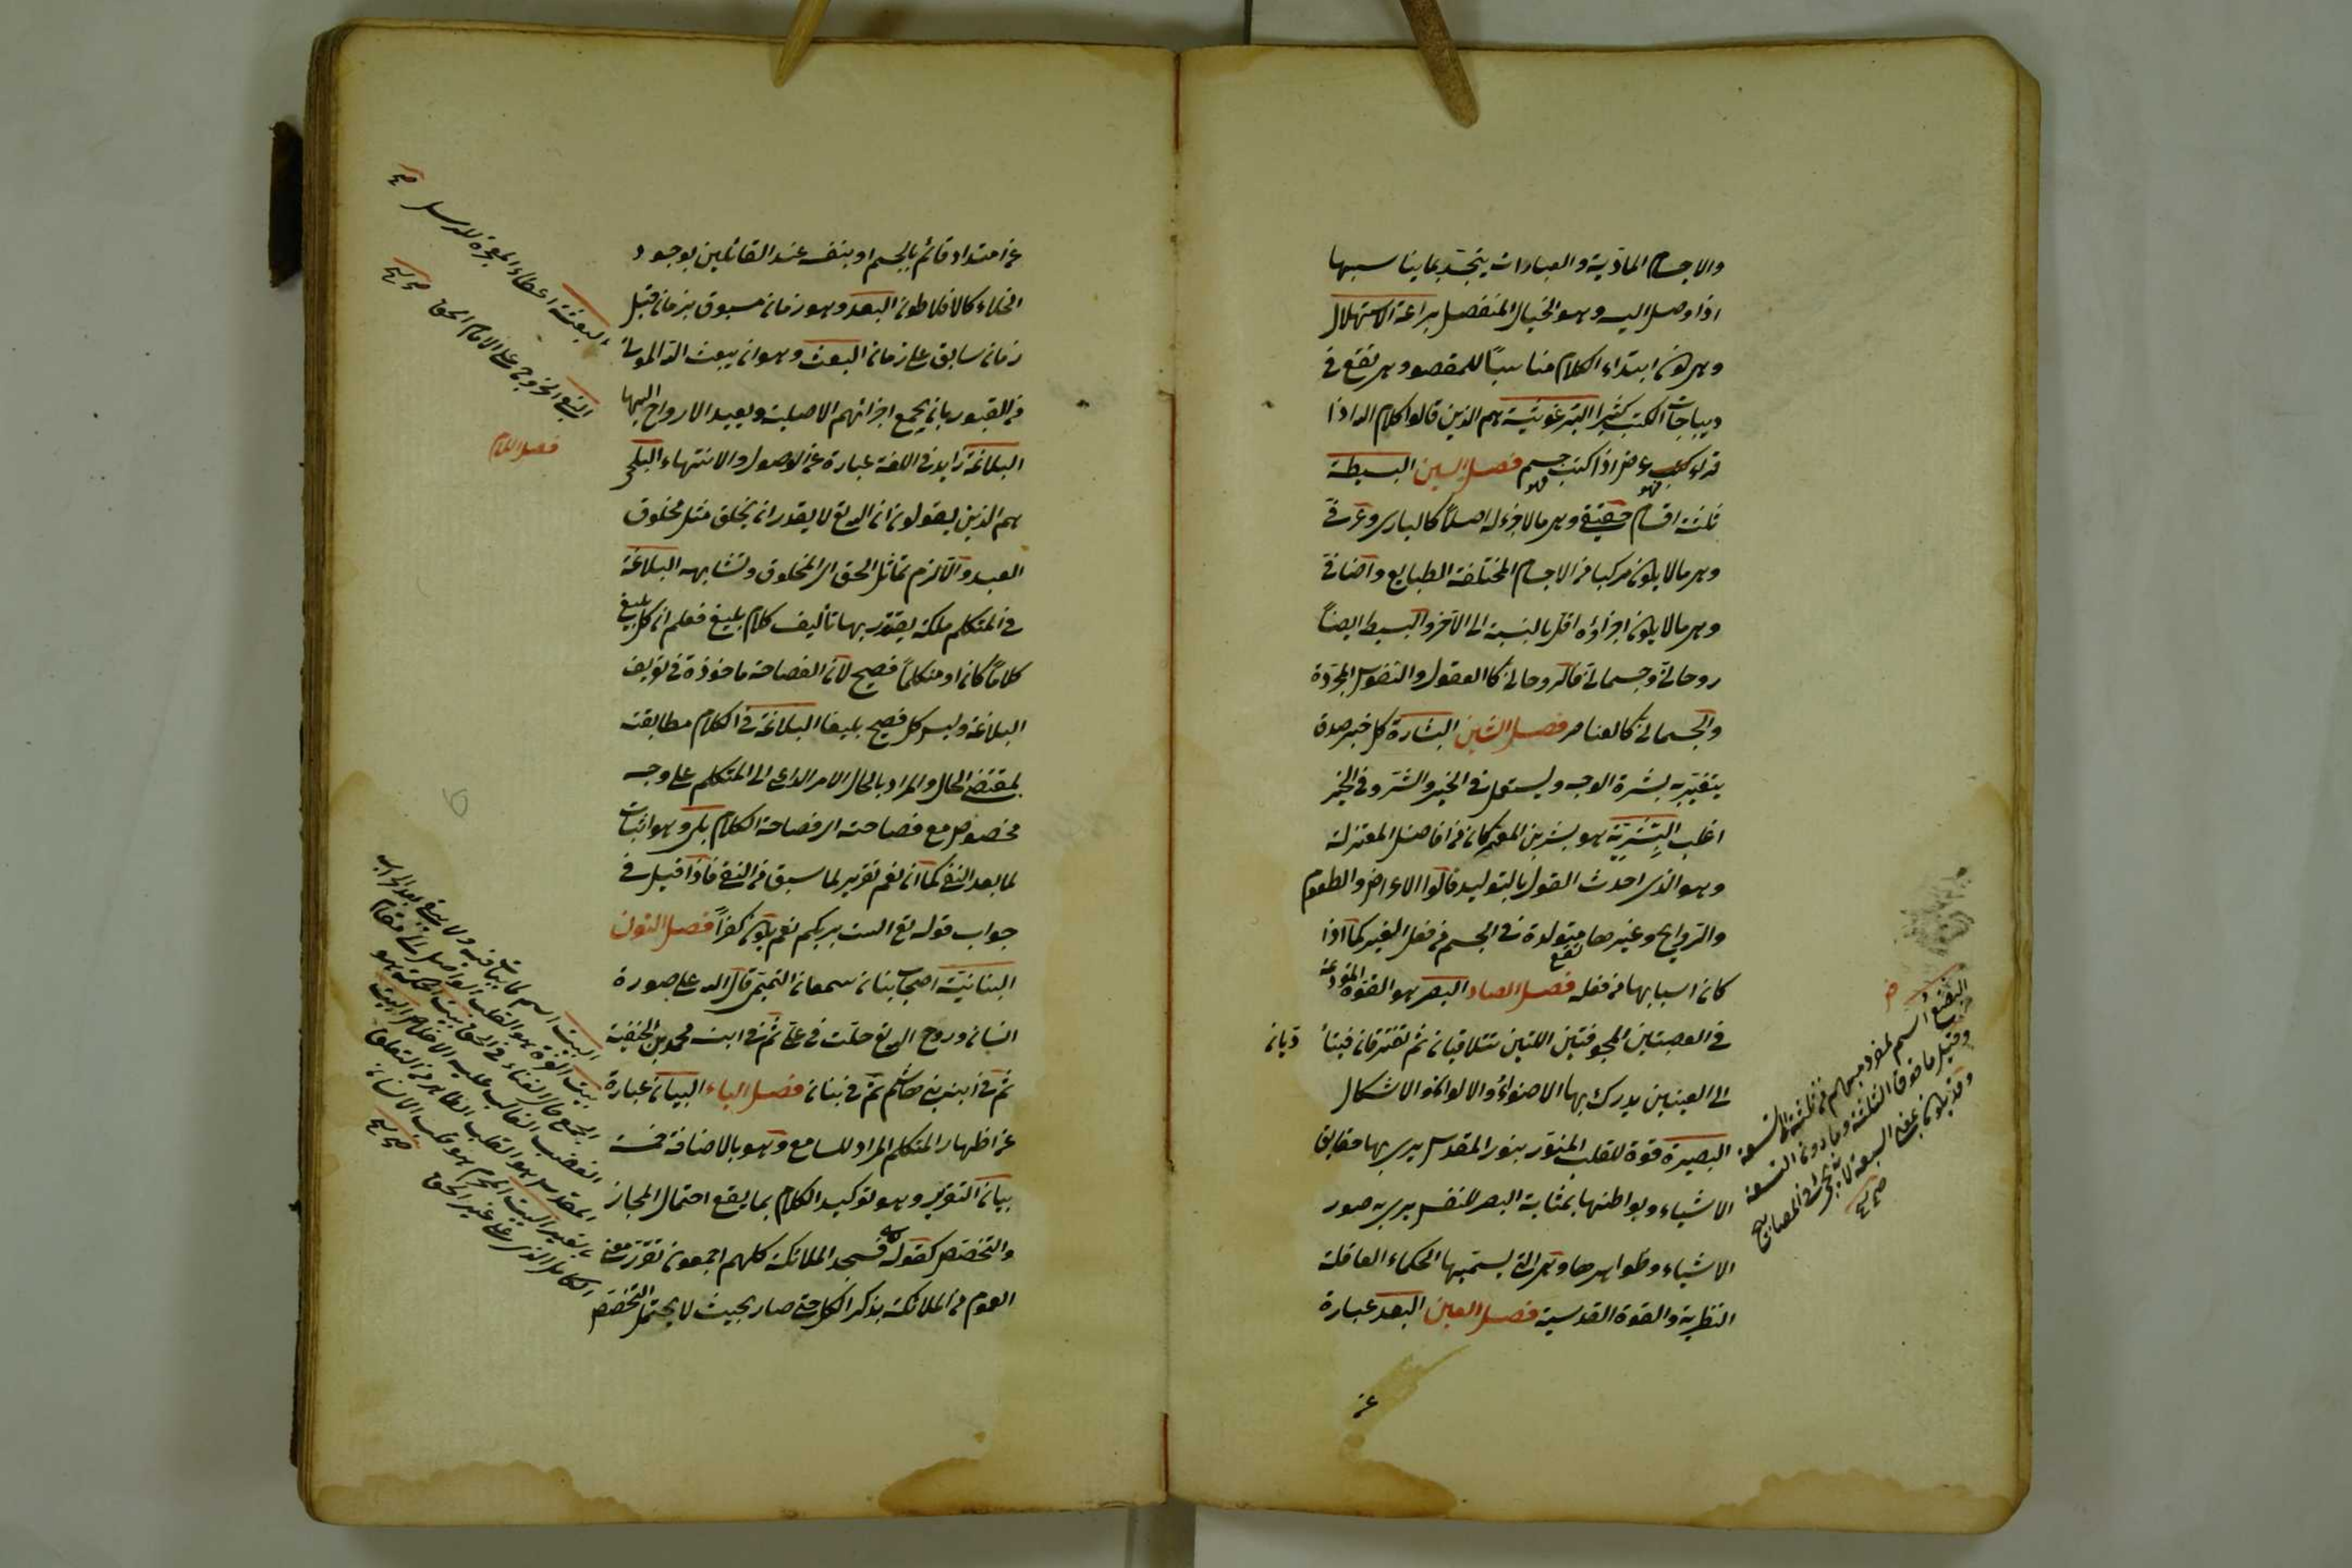 والاجسام الماذية والعبادات يتجسد بما يناسبها
اذا وصل اليه وهو الخيال المنفصل براعة الاستهلال
وهي كون ابتداء الكلام مناسبًا للمقصود وهي تقع في
ديباجات الكتب كثيرا البرغوثية هم الذين قالوا كلام الله اذا
قرئ عرض اذا كتب جسم فصل السين البسيطة
ثلثة اقسام حقيقي وهو مالا جزء له اصلاً كالباري وعرفي
وهو مالا يكون مركبا من الاجسام المختلفة الطبايع واضافي
وهو مالا يكون اجزاؤه اقل بالنسبة الى الآخر والبسيط ايضًا
روحاني وجسماني فالروحاني كالعقول والنفوس المجردة
والجسماني كالعناصر فصل الشين البشارة كل خبر صدق
يتغير به بشرة الوجه ويستعمل في الخير والشر وفي الخير
اغلب البِشْريّة هو بشر بن المعتمر كان من افاضل المعتزلة
وهو الذي احدث القول بالتوليد قالوا الاعراض والطعوم
والروايح وغيرها تقع متولدة في الجسم من فعل الغير كما اذا
كان اسبابها من فعله فصل الصاد البصر هو القوة المودعة
في العصبتين المجوفتين اللتين تتلاقيان ثم تفترقان فيتأديان
الى العينين يدرك بها الاضواء والالوان والاشكال
البصيرة قوة للقلب المنور بنور المقدس يرى بها حقايق
الاشياء وبواطنها بمثابة البصر للنفس يرى به صور
الاشياء وظواهرها وهي التي يسميها الحكماء العاقلة
النظرية والقوة القدسية فصل العين البعد عبارة
عن
البضع اسم لمفرد مبهم من ثلثة الى تسعة
وقيل ما فوق الثلثة وما دون التسعة
وقد يكون بمعنى السبعة لانه يجئ في المصابيح
صح
عن امتداد قائم بالجسم او بنفسه عند القائلين بوجود
الخلاء كالافلاطون البعد وهو زمان مسبوق بزمان قبل
زمان سابق على زمان البعث وهو ان يبعث الله الموتى
من القبور بان يجمع اجزائهم الاصلية ويعيد الارواح اليها
البلاغة في اللغة عبارة عن الوصول والانتهاء
هم الذين يقولون ان الله تع لا يقدر ان يخلق مثل مخلوق
العبد والا لزم تماثل الحق الى المخلوق وتشابهه البلاغة
في المتكلم ملكة يقتدر بها تأليف كلام بليغ فعلم ان كل بليغ
كلامًا كان او متكلمًا فصيح لان الفصاحة ماخوذة في تعريف
البلاغة وليس كل فصيح بليغا البلاغة في الكلام مطابقته
لمقتضى الحال والمراد بالحال الامر الداعي الى المتكلم على وجه
مخصوص مع فصاحته اى فصاحة الكلام بلى وهو اثبات
لما بعد النفي كما ان نعم تقرير لما سبق من النفي فاذا قيل في
جواب قوله تع الست بربكم نعم يكون كفرًا فصل النون
البنانيّة اصحاب بنان بن سمعان التميمي قال الله على صورة
انسان وروح الله تع حلت في علي ثم في ابنه محمد بن الحنفية
ثم في ابنه بن هاشم ثم في بنان فصل الياء البيان عبارة
عن اظهار المتكلم المراد للسامع وهو بالاضافة خمسة
بيان التقرير وهو توكيد الكلام بما يقع احتمال المجاز
والتخصيص كقوله تع فسجد الملائكة كلهم اجمعون تقرر معنى
العموم من الملائكة بذكر الكل حتى صار بحيث لا يحتمل التخصيص
البعثة اعطاء المعجزة للرسل صح
البغي الخروج على الامام الحق صح
فصل اللام
البيت اسم لما يبات فيه
بيت العزة هو القلب الواصل الى مقام
الجمع حال الفناء في الحق بيت الحكمة هو
القلب الغالب عليه الاخلاص البيت
المقدس هو القلب الطاهر من التعلق
بالغير البيت المحرم هو قلب الانسان
الكامل الذي غير الحق
صح